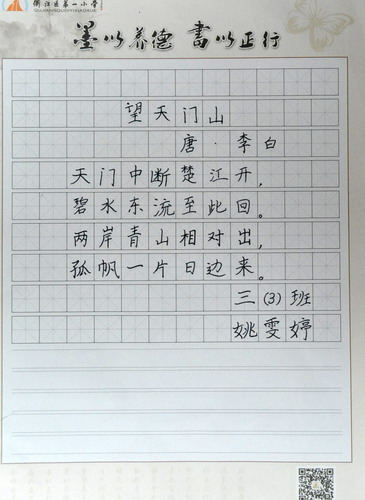 衢江区第一小学
墨以养德 書以正行
望天门山
唐·李白
天门中断楚江开,
碧水东流至此回。
两岸青山相对出,
孤帆一片日边来。
三(3)班
姚雯婷